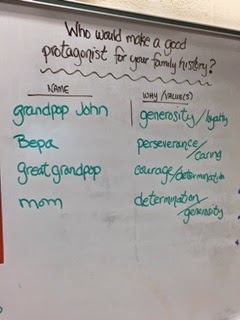 Who would make a good
protagonist for your family history?
NAME WHY/VALUE(S)
grandpop John generosity/loyalty
Bepa perseverance/
caring
great grandpop courage/determination
mom determination
/generosity